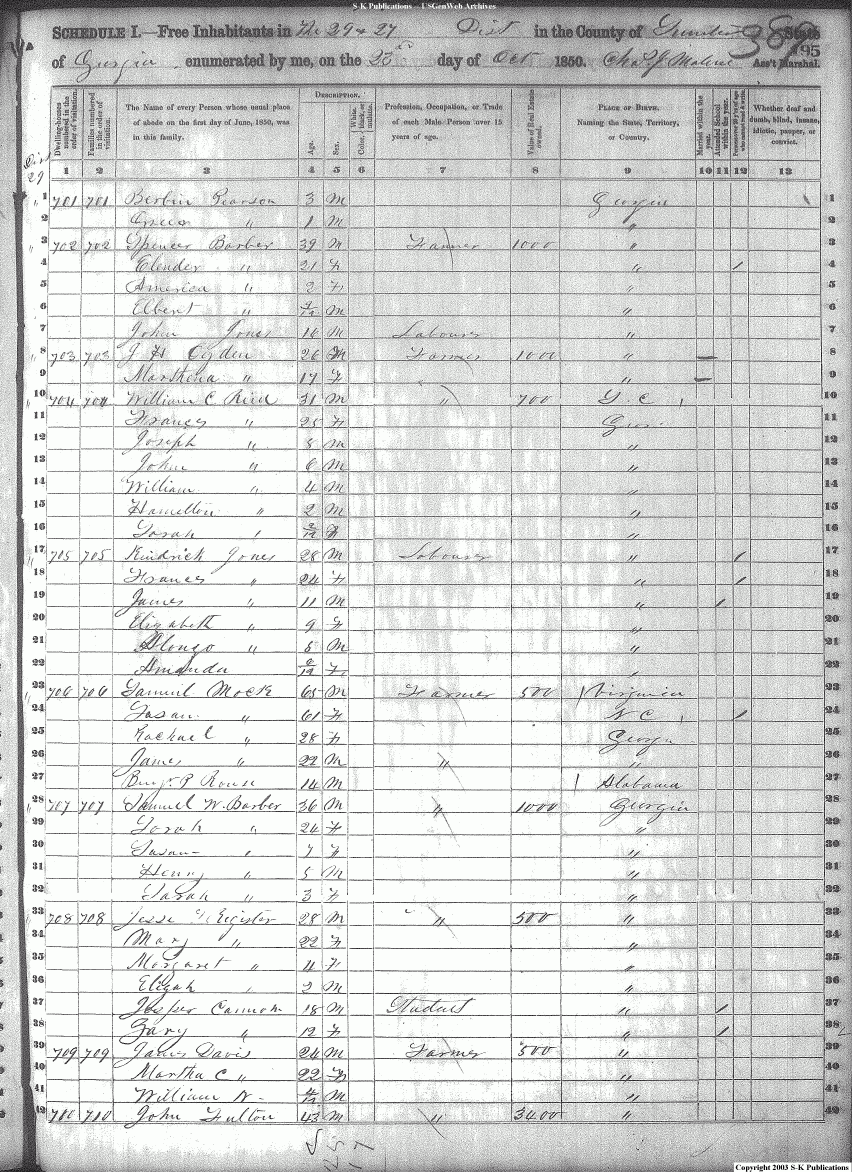 S-K Publications – USGenWeb Archives
SCHEDULE I.—Free Inhabitants in The 29 & 27 Dist in the County of State
of Georgia enumerated by me, on the 25th day of Oct 1850. Chas J Ass't Marshal.
386
495
Dist 29
Dwelling-houses numbered in the order of visitation.
Families numbered in the order of visitation.
The Name of every Person whose usual place of abode on the first day of June, 1850, was in this family.
DESCRIPTION.
Age.
Sex.
White, black, or mulatto.
Color,
Profession, Occupation, or Trade of each Male Person over 15 years of age.
Value of Real Estate owned.
PLACE OF BIRTH. Naming the State, Territory, or Country.
Married within the year.
Attended School within the year.
Persons over 20 y'rs of age who cannot read & write.
Whether deaf and dumb, blind, insane, idiotic, pauper, or convict.
1 2 3 4 5 6 7 8 9 10 11 12 13
1 701 701 Berlin Pearson 3 M Georgia 1
2 " 1 M " 2
3 702 702 Spencer Barber 39 M Farmer 1000 " 3
4 Elender " 21 F " / 4
5 America " 2 F " 5
6 Elbert " M " 6
7 John Jones 16 M Labourer " 7
8 703 703 J H Ogden 26 M Farmer 1000 " 8
9 Marthena " 17 F " 9
10 704 704 William C Reid 31 M " 700 10
11 Frances " 25 F Geor 11
12 Joseph " 8 M " 12
13 John " 6 M " 13
14 William " 4 M " 14
15 Hamelton " 2 M " 15
16 Sarah " F " 16
17 705 705 Kindrick Jones 28 M Labourer " / 17
18 Frances " 24 F " / 18
19 James " 11 M " / 19
20 Elizabeth " 9 F " 20
21 Alonzo " 5 M " 21
22 Amanda F " 22
23 706 706 Samuel Mock 65 M Farmer 500 Virginia 23
24 Susan " 61 F N C / 24
25 Rachael " 28 F Georga 25
26 James " 22 M " " 26
27 Benj. P Rouse 14 M Alabama 27
28 707 707 Samuel W. Barber 36 M " 1000 Georgia 28
29 Sarah " 24 F " 29
30 Susan " 7 F " 30
31 Henry " 5 M " 31
32 Sarah " 3 F " 32
33 708 708 Jesse Register 28 M " 500 " 33
34 Mary " 22 F " 34
35 Margaret " 4 F " 35
36 Elijah " 2 M " 36
37 Jesper Cannon 18 M Student " / 37
38 Zary " 12 F " / 38
39 709 709 James Davis 24 M Farmer 500 " 39
40 Martha C " 22 F " 40
41 William N M " 41
42 710 710 John Fulton 43 M " 3400 " 42
Copyright 2003 S-K Publications